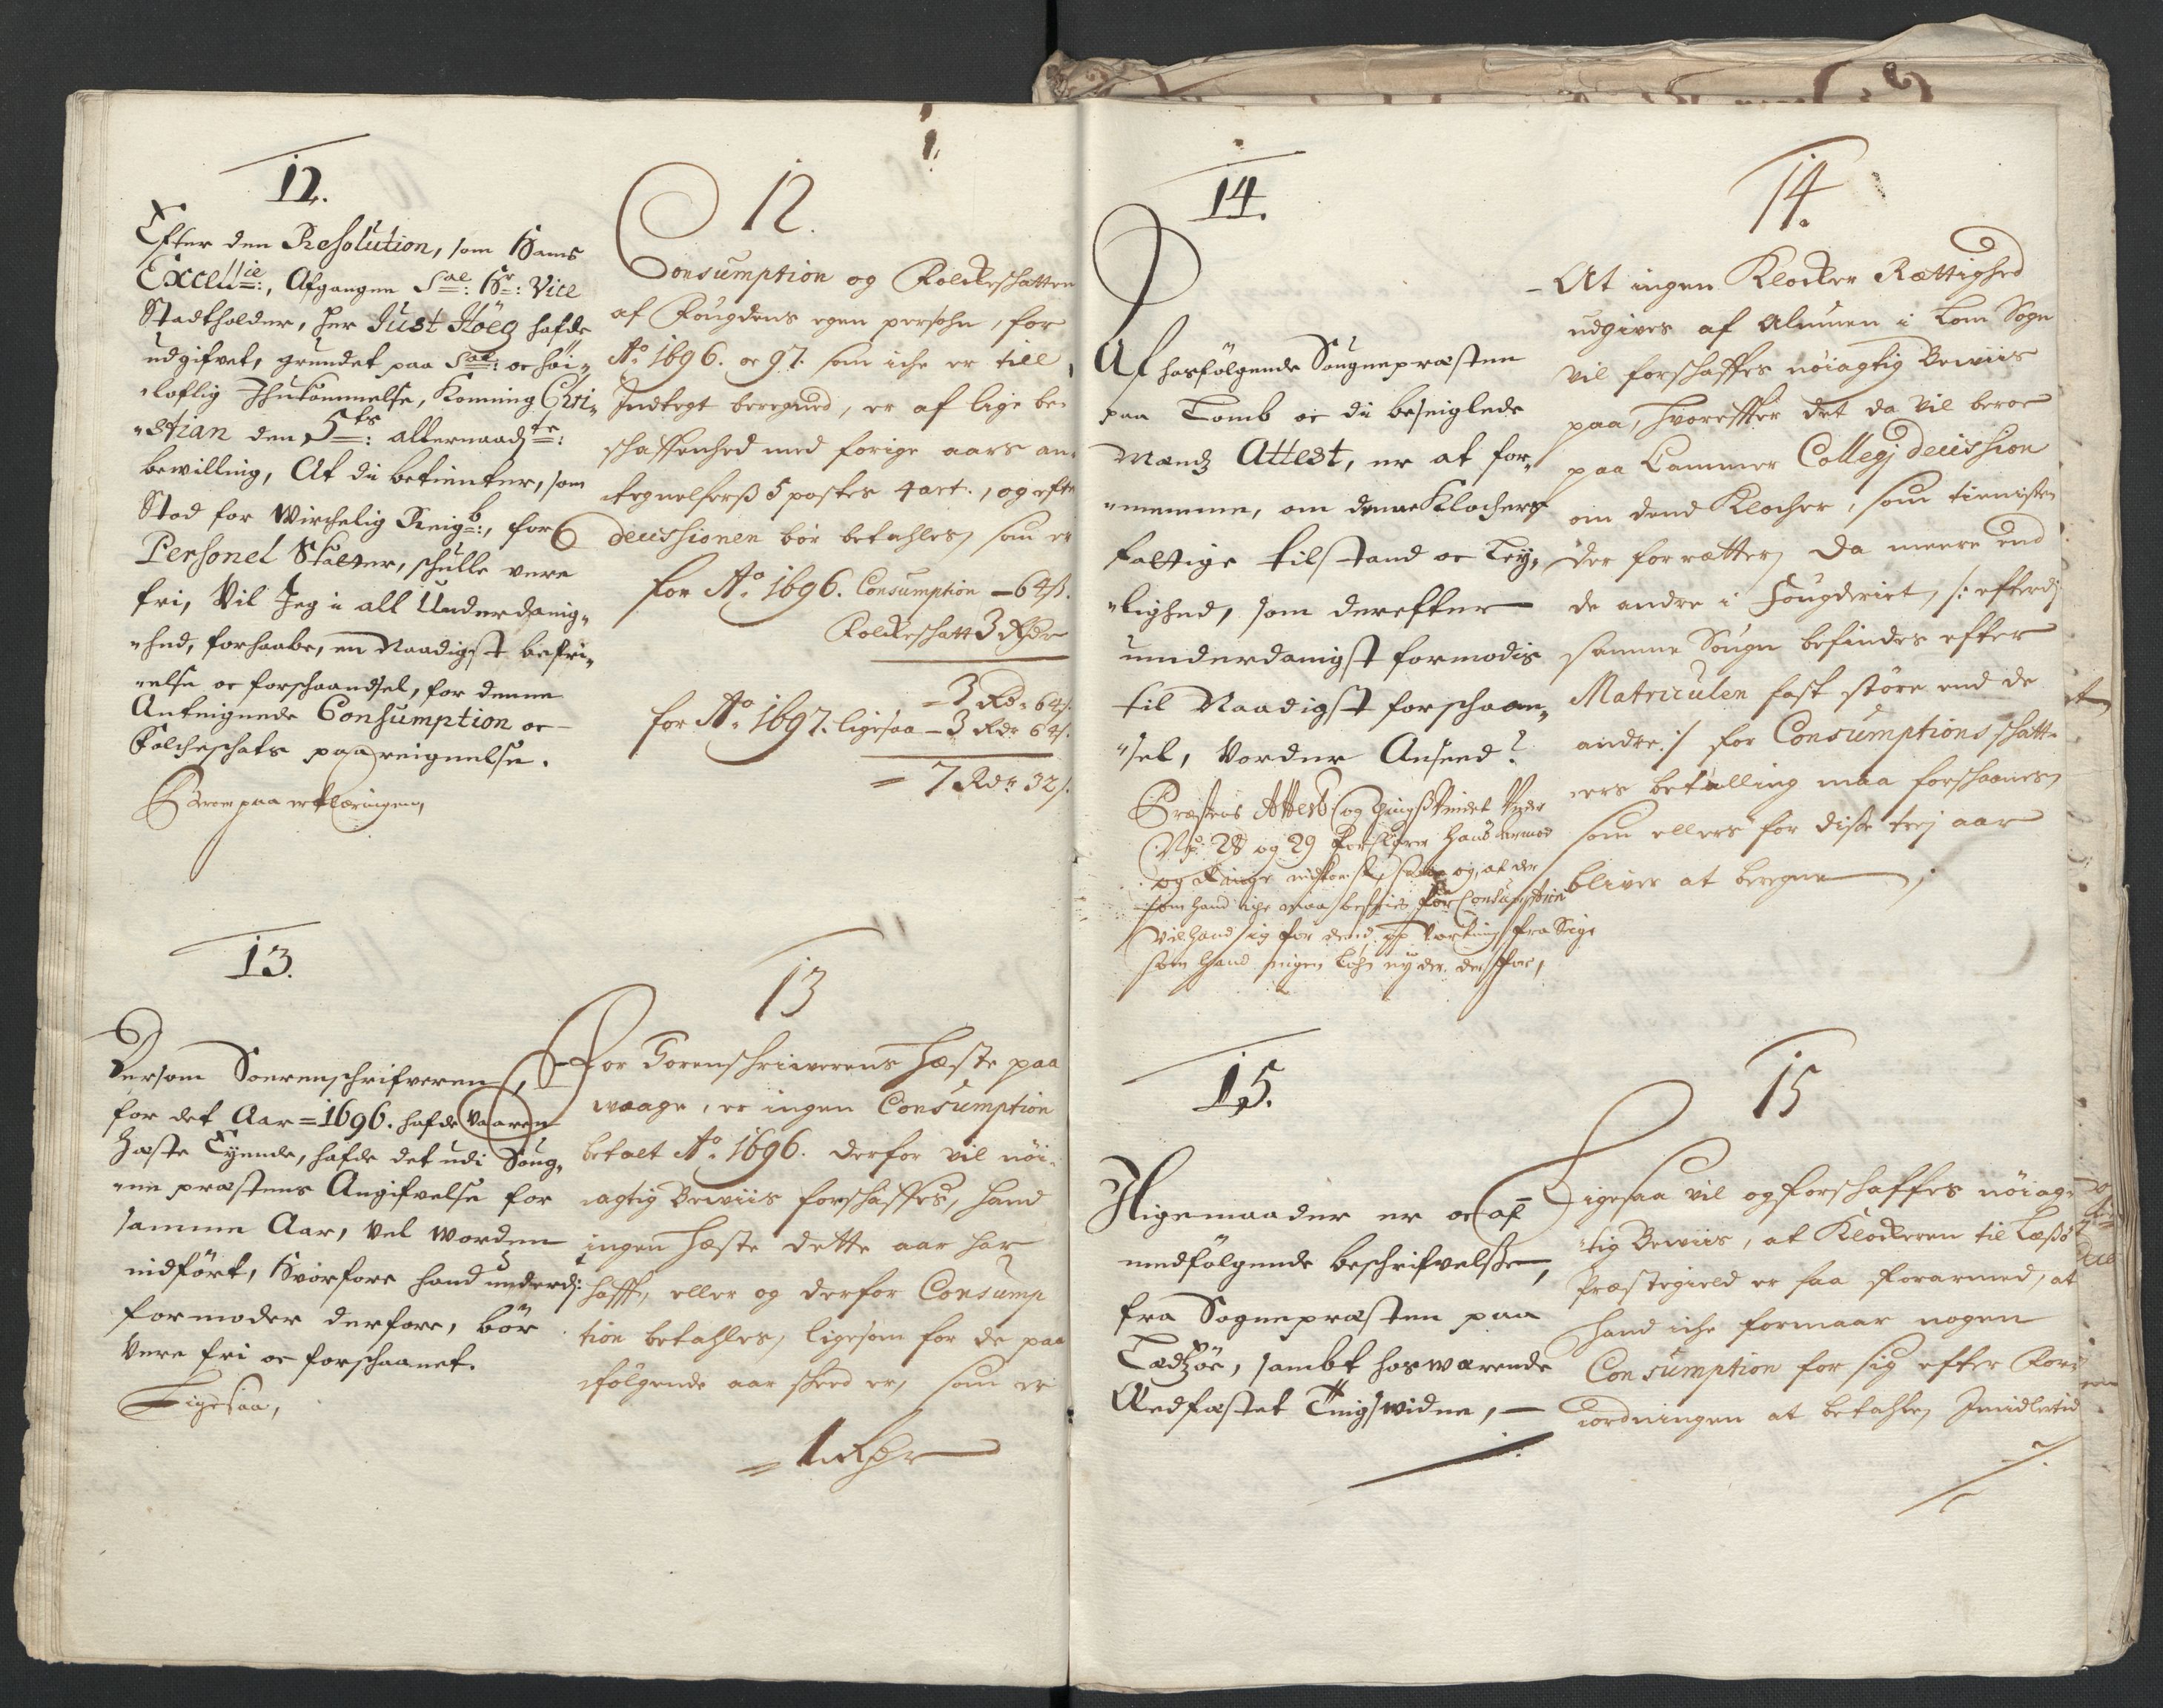 12.
Efter den Resolution, som Hans
Excellie:, Afgangen Sal: Hr: Vice
Stadtholder, Her Just Höeg hafde
udgifvet, grundet paa Sal: oc höi„
„loflig Ihukommelse, Konning Chri„
„stian den 5tes: allernaadste:
bewilling, At de betienter, som
Stod for Wirchelig Reigb:, for
Personel Skatter, schulle vere
fri, Vil Jeg i all Underdanig„
„hed, forhaabe, en Naadigst befri„
„else oc forschaandsel, for denne
Anteignede Consumption oc
Folcheschats paareignelse.
Beroer paa erklæringen,
12.
Consumption og Folckeschatten
af Fougdens egen persohn, for
Ao 1696. oc 97. som iche er till
Indtegt beregned, er af lige be
schaffenhed med forige aars an„
tegnelserss 5 postes 4 art., og efter
decissionen bör betahles, som er
for Ao. 1696. Consumption – 64 s.
Folckeschatt 3 Rdr
= 3 Rdr 64 s.
for Ao 1697. ligesaa – 3 Rdr 64 s.
= 7 Rdr 32 s.
13.
Dersom Soerenschrifveren,
for det Aar = 1696. hafde vaaren
Hæste Tyende, hafde det udi Soug„
„ne præstens Angifvelse for
samme Aar, vel worden
indfört, Hvorfore hand underd:
formoder derfore, bör
Vere fri oc forschaanet.
Ligesaa,
13
For Sorenschriwerens Hæste paa
waage, er ingen Consumption
betalt Ao. 1696. derfor vil nöi„
agtig Beviis forschaffes, hand
ingen Hæste dette aar har
hafft, eller og derfor Consump
tion betahles, ligesom for de paa
fölgende aar skeed er, som er
= 1 Rdr
14.
Af hosfölgende Sougnepræsten
paa Lomb oc de beseiglede
Mændz Attest, er at for„
„nemme, om denne Klochers
fattige tilstand oc Ley„
„lighed, som derefter
underdanigst formodis
til Naadigst forschaan„
„sel, Vorder Anseed?
Præstens Attest og Tingssvidnet Under
No. 28 og 29 forklarer hans armod
og ringe
som hand iche maa befries for Consumption
vil hand sig for dend op Vartning fra Sige
som hand ingen Löhn nyder derfor,
14.
– At ingen Klocker Rættighed
udgives af Almuen i Lom Sogn
vil forschaffes nöiagtig Beviis
paa, hvorefter det da vil beroe
paa Cammer Collegj decission
om dend Klocher, som tienisten
der forrætter, da meere end
de andre i Fougderiet, /: efterdj
samme Sougn befindes efter
Matriculen fast störe end de
andre :/ for Consumptions schatt„
„ers betalling maa forschaanes,
som ellers for disse trej aar
bliver at beregne
15.
I Ligemaader er oc af
medfölgende beschrifvelsse,
fra Sognepræsten paa
Ledssöe, sambt hosværende
Eedfæstet Tingswidne, –
15
Ligesaa vil og forschaffes nöiag„
„tig Beviis, at Klockeren til Læssö
Præstegield er saa forarmed, at
hand iche formaar nogen
Consumption for sig efter For
ordningen at betahle, Imidlertid